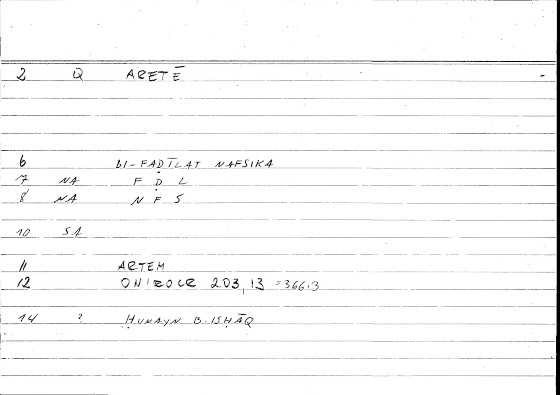 2 Q ARETĒ
6 BI-FAḌĪLAT NAFSIKA
7 NA F Ḍ L
8 NA N F S
10 SA
11 ARTEM
12 ONIROCR 203,13 =366.3
14 ? ḤUNAYN B. ISḤĀQ